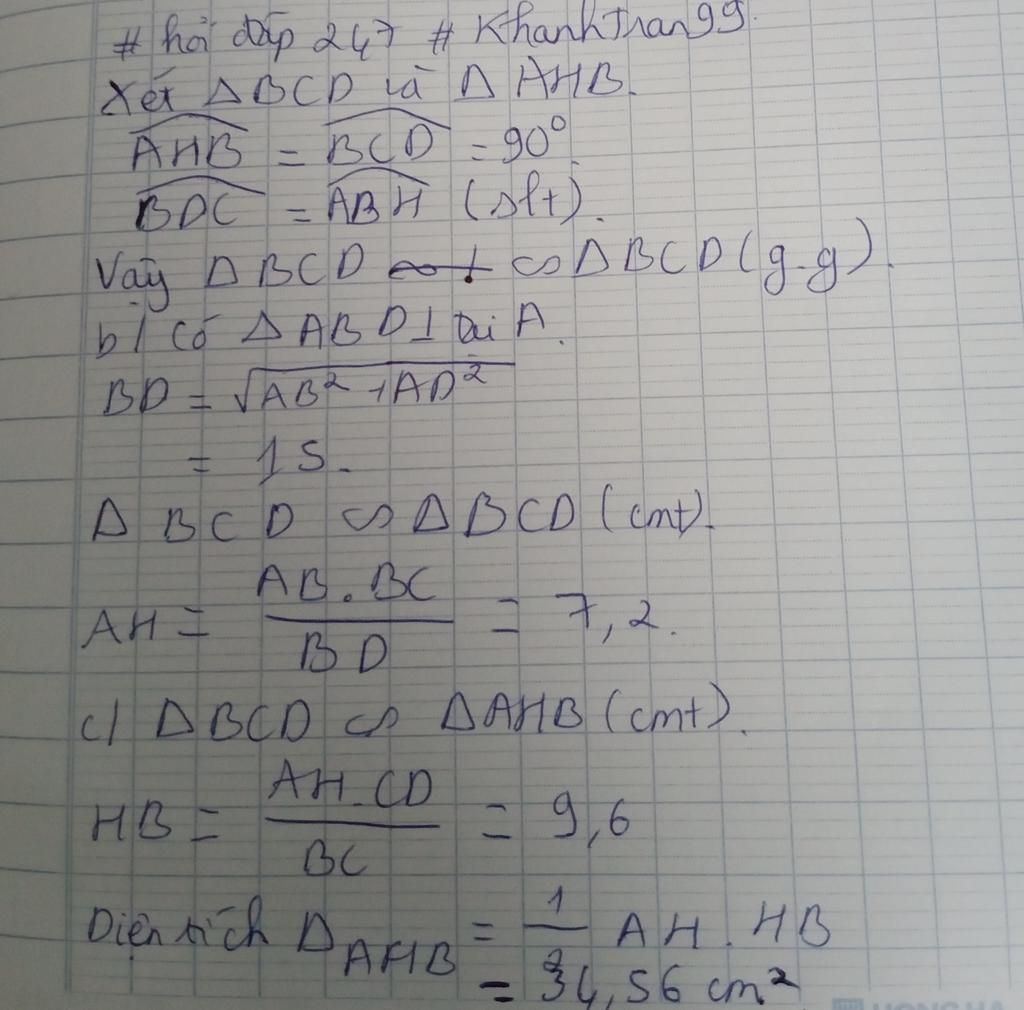 # hỏi đáp 247 # Khanhthan99.
Xét Δ BCD và Δ AHB.
AHB = BCD = 90°
BDC = ABH (slt).
Vậy Δ BCD ∽ Δ BCD (g-g).
b/ Có Δ ABD ⊥ tại A.
BD = √AB² + AD²
= 15.
Δ BCD ∽ Δ BCD (cmt).
AH = AB . BC / BD = 7,2.
c/ Δ BCD ∽ Δ AHB (cmt).
HB = AH . CD / BC = 9,6
Diện tích Δ AHB = 1/2 AH . HB
= 34,56 cm²